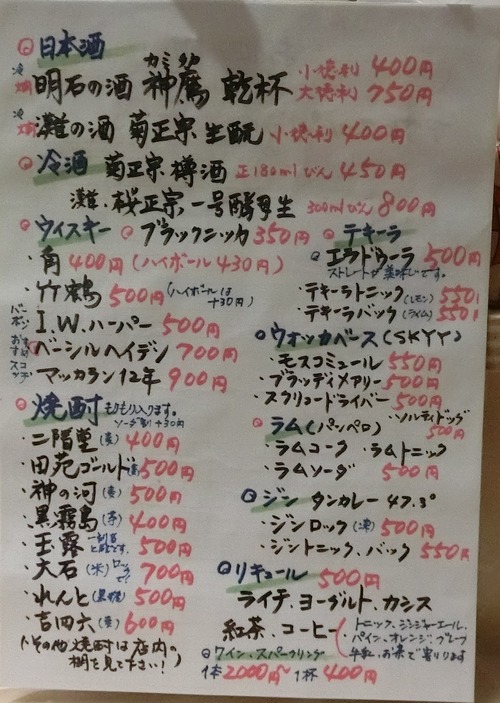 日本酒
冷 燗 明石の酒 神鷹 乾杯 小徳利 400円
カミタカ
大徳利 750円
冷 燗 灘の酒 菊正宗 生酛 小徳利 400円
冷酒 菊正宗 樽酒 正180mlびん 450円
灘、桜正宗 一号酵母生 300mlびん 800円
ウイスキー
ブラックニッカ 350円
・角 400円 (ハイボール430円)
・竹鶴 500円 (ハイボールは+30円)
バーボン I.W.ハーパー 500円
おすすめ ベーシルヘイデン 700円
スコッチ マッカラン12年 900円
焼酎 もりもり入ります。
ソーダ割り+30円
・二階堂(麦) 400円
・田苑ゴールド(麦) 500円
・神の河(麦) 500円
・黒霧島(芋) 400円
・玉露 500円
・大石(米) ロックで! 700円
・れんと(黒糖) 500円
・吉四六(麦) 600円
(その他焼酎は店内の棚を見て下さい!)
テキーラ
・エラドゥーラ 500円
ストレートが美味しいです。
・テキーラトニック(レモン) 550円
・テキーラバック(ライム) 550円
ウォッカベース(SKYY)
・モスコミュール 550円
・ブラッディメアリー 500円
・スクリュードライバー 500円
・ソルティドッグ 500円
ラム(パンペロ)
・ラムコーク ・ラムトニック
・ラムソーダ 500円
ジン タンカレー 47.3°
・ジンロック(凍) 500円
・ジントニック、バック 550円
リキュール 500円
ライチ、ヨーグルト、カシス
紅茶、コーヒー
トニック、ジンジャーエール、
パイン、オレンジ、グレープ
牛乳、お茶で割ります
ワイン、スパークリング
1本2000円〜 1杯400円